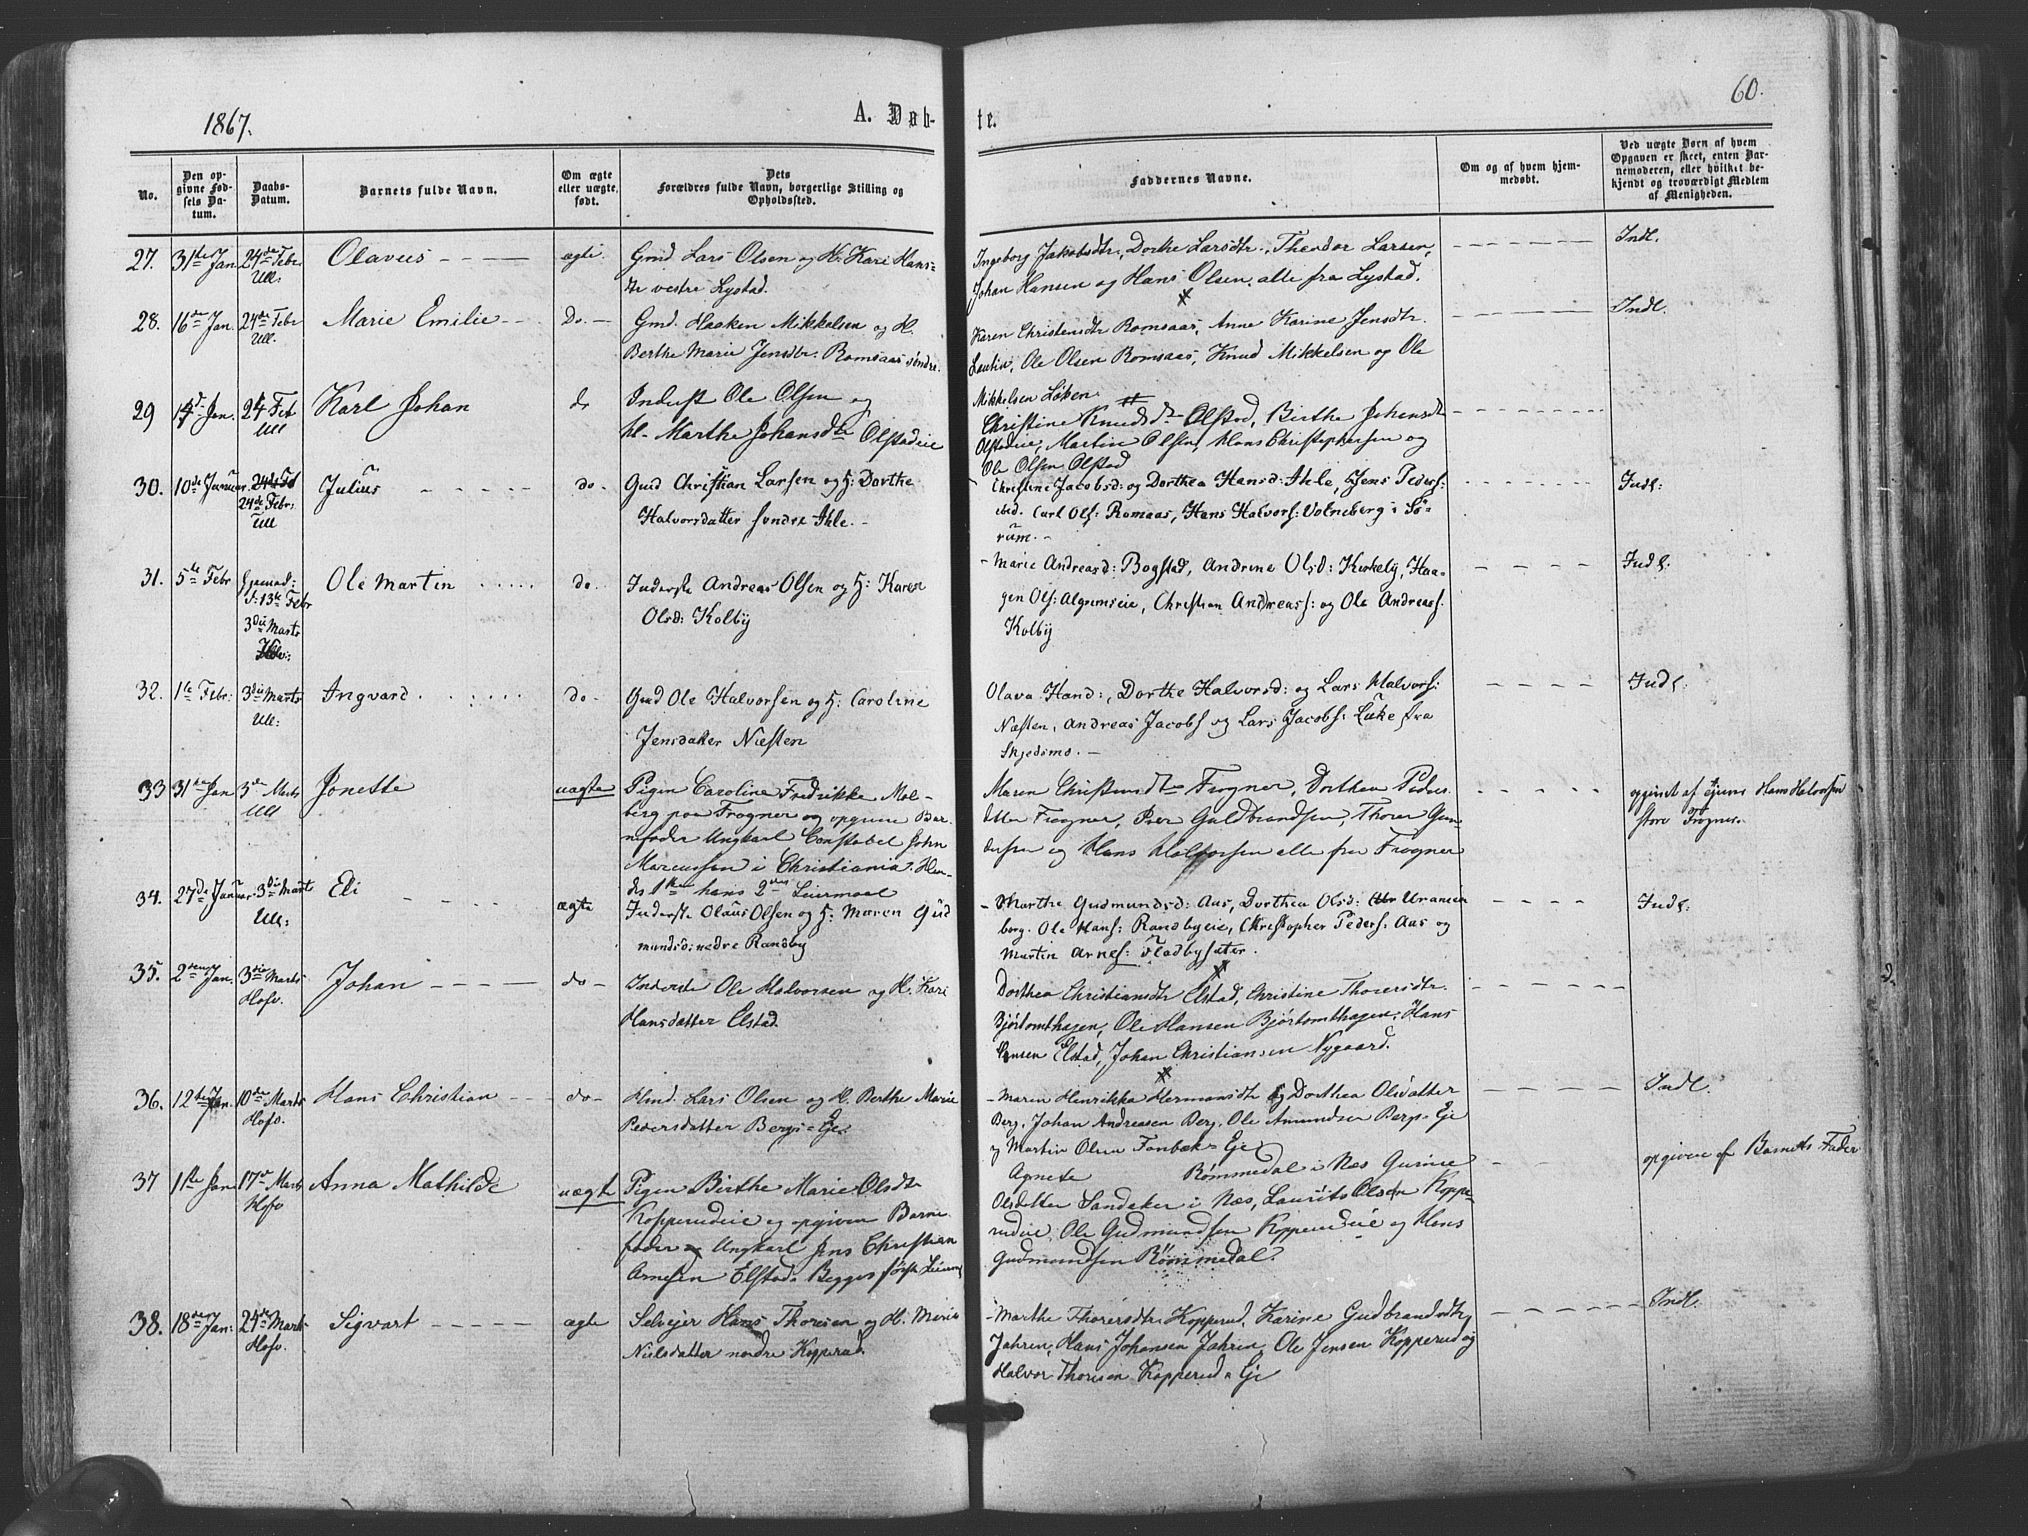 1867.
A. Døb-
te.
60.
No.
Den op-
givne Fød-
sels Da-
tum.
Daabs-
Datum.
Barnets fulde Navn.
Om ægte
eller uægte
født.
Dets
Forældres fulde Navn, borgerlige Stilling og
Opholdssted.
Faddernes Navne.
Om og af hvem hjem-
medøbt.
Ved uægte Børn af hvem
Opgaven er skeet, enten Bar-
nemoderen, eller hvilket be-
kjendt og troværdigt Medlem
af Menigheden.
27. 31te Jan 24de Febr. Olavus ægte Gmd. Lars Olsen og H. Kari Hans-
Ull:
dtr vestre Lystad.
Ingeborg Jakobsdtr., Dorthe Larsdtr., Theodor Larsen,
Johan Hansen og Hans Olsen, alle fra Lystad.
Indl.
28. 16de Jan. 24de Febr Marie Emilie Do. Gmd. Haaken Mikkelsen og H.
Ull.
Berthe Marie Jensdtr. Romsaas søndre.
Karen Christensdtr Romsaas, Anne Karine Jensdtr.
Ole Olsen Romsaas, Knud Mikkelsen og Ole
Mikkelsen Løken.
Indl.
29 14d Jan. 24 Feb Karl Johan do Inderst Ole Olsen og
Ull
hl. Marthe Johansdtr Olstadeie
Christine Knudsdtr Olstad, Birthe Johansdt
Olstadeie, Martin Olsen, Hans Christophersen og
Ole Olsen Olstad
30. 10de Januar. 24de Febr: Julius do. Gmd Christian Larsen og H: Dorthe
Ull
Halvorsdatter søndre Ihle.
Christine Jacobsd: og Dorthea Hansd: Ihle, Jens Peders:
ibid. Carl Ols: Romaas, Hans Halvors: Volneberg i Sø-
rum.
Indl:
31. 5te Febr Ole Martin do. Inderste Andreas Olsen og H: Karen
Hjemmed:
d: 13de Febr
3die Marts
Olsd: Kolby
Marie Andreasd: Bogstad, Andrine Olsd: Kirkeby, Haa-
gen Ols: Algrimseie, Christian Andreass: og Ole Andreass.
Kolby
Indl.
32. 1te Febr: 3die Marts Ingvard. do. Gmd Ole Halvorsen og H: Caroline
Ull:
Jensdatter Næsten
Olava Hansd:, Dorthe Halvorsd: og Lars Halvors:
Næsten, Andreas Jacobs og Lars Jacobs: Lake fra
Skjedsmo.
Indl:
33 31te Jan 3die Marts Jonette uægte Pigen Caroline Fredrikke Mol-
Ull
berg paa Frogner og opgiven Bar-
nefader Ungkarl Constabel John
Marcussen i Christiania. Hen-
des 1ste hans 2det Leiermaal
Maren Christensdtr Frogner, Dorthea Peders-
datter Frogner, Peer Guldbrandsen, Thorer Gun-
dersen og Hans Halvorsen alle fra Frogner
opgivet af Hans Halvorsen
store Frogner.
34. 27de Januar 3die Marts Eli ægte Inderste Olaus Olsen og H: Maren Gud
Ull:
mundsd: nedre Randby
Marthe Gudmundsd: Aas, Dorthea Olsd: Uranien
borg. Ole Hans: Randbyeie, Christopher Peders. Aas og
Martin Arnes: Fladbysæter.
Indl:
35. 2den Jan. 3die Marts Johan do Inderste Ole Halvorsen og H. Kari
Hofv.
Hansdatter Elstad.
Dorthea Christiansdtr Elstad, Christine Thorersdtr.
Bjørtomthagen, Ole Hansen Bjørtomthagen, Hans
Hansen Elstad, Johan Christiansen Nygaard.
36. 12te Jan. 10de Marts Hans Christian do Hmd. Lars Olsen og H. Berthe Marie
Hofv.
Pedersdatter Bergs-Eje
Maren Henrikka Hermansdtr og Dorthea Olsdatter
Berg, Johan Andreasen Berg, Ole Amundsen Bergs-Eje
og Martin Olsen Fonbæk-Eje
Indl.
37 11te Jan 17de Marts Anna Mathilde uægte Pigen Birthe Marie Olsdtr
Hofv
Kopperudeie og opgiven Barne
fader Ungkarl Jens Christian
Arnesen Elstad. Begges første Leierm.
Agnete Rømmedal i Næs Gurine
Olsdatter Sandaker i Næs, Laurits Olsen Koppe-
rudeie, Ole Gudmundsen Kopperudeie og Hans
Gudmundsen Rømmedal.
opgiven af Barnets Fader
38. 18de Jan: 24de Marts Sigvart ægte Selvejer Hans Thoresen og H. Maria
Hofv.
Nielsdatter nordre Kopperud.
Marthe Thorersdtr Kopperud, Karine Gudbrandsdtr
Jahren, Hans Johansen Jahren, Ole Jensen Kopperud og
Halvor Thoresen Kopperud-Eje
Indl.